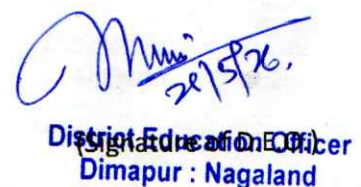 28/5/26.
District Education Officer
(Signature of D.E.O.)
Dimapur : Nagaland